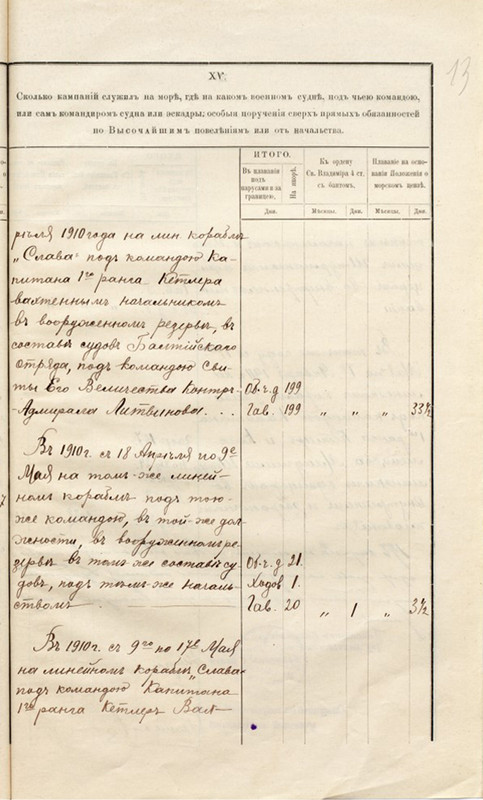 13
XV.
Сколько кампаній служилъ на морѣ, гдѣ на какомъ военномъ суднѣ, подъ чьею командою,
или самъ командиромъ судна или эскадры; особыя порученія сверхъ прямыхъ обязанностей
по Высочайшимъ повелѣніямъ или отъ начальства.
ИТОГО.
Въ плаваніи подъ парусами и за границею,
На якорѣ.
Къ ордену Св. Владиміра 4 ст. съ бантомъ.
Плаваніе на основаніи Положенія о морскомъ цензѣ.
Дни.
Мѣсяцы. Дни.
Мѣсяцы. Дни.
рѣля 1910 года на лин. кораблѣ
„Слава“ подъ командою Ка-
питана 1го ранга Кетлера
вахтеннымъ начальникомъ
въ вооруженномъ резервѣ, въ
составѣ судовъ Балтійскаго
Отряда, подъ командою Сви-
ты Его Величества Контръ- Об.ч.д 199
Адмирала Литвинова . . . Гав. 199 „ „ „ 33½
Въ 1910 г. съ 18 Апрѣля по 9е
Мая на томъ-же линей-
номъ кораблѣ подъ тою-
же командою, въ той-же дол-
жности, въ вооруженномъ ре-
зервѣ въ томъ же составѣ су- Об.ч.д 21.
довъ, подъ тѣмъ-же началь- Ходов 1.
ствомъ Гав. 20 „ 1 „ 3½
Въ 1910 г. съ 9го по 17е Мая
на линейномъ кораблѣ „Слава“
подъ командою Капитана
1го ранга Кетлеръ Вах-